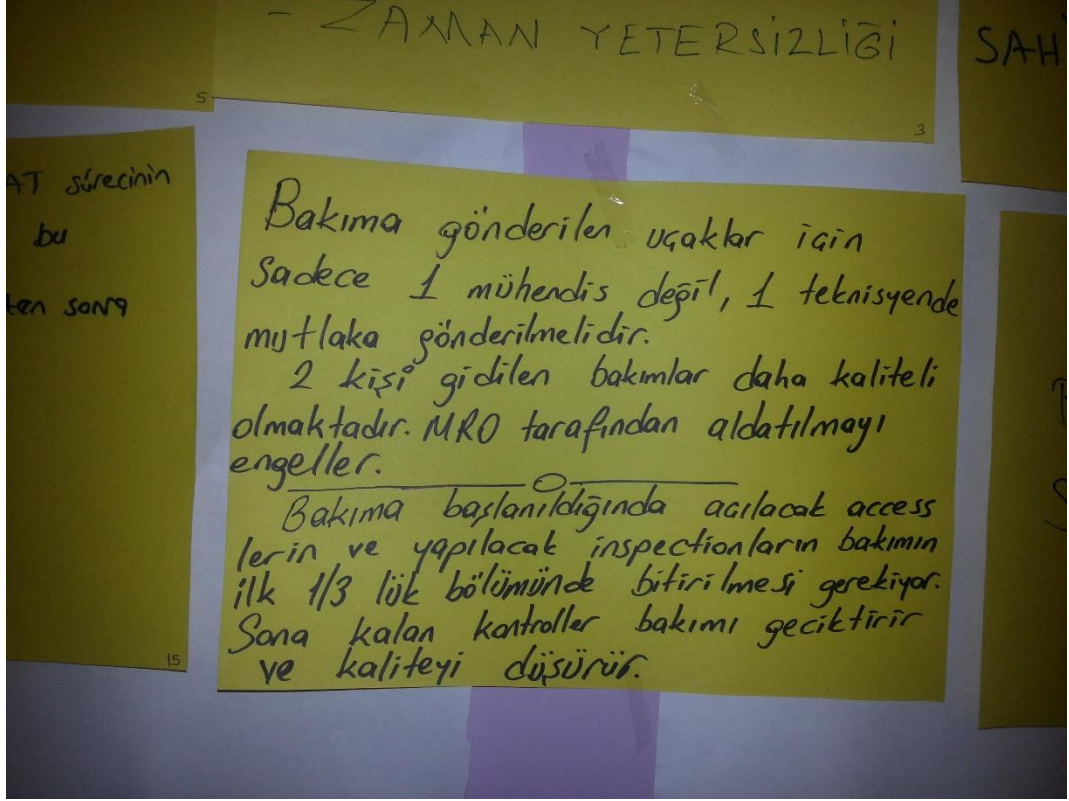 - ZAMAN YETERSİZLİĞİ
SAH
5
3
AT sürecinin
bu
ten sonra
15
Bakıma gönderilen uçaklar için
Sadece 1 mühendis değil, 1 teknisyende
mutlaka gönderilmelidir.
2 kişi gidilen bakımlar daha kaliteli
olmaktadır. MRO tarafından aldatılmayı
engeller.
Bakıma başlanıldığında açılacak access
lerin ve yapılacak inspectionların bakımın
ilk 1/3 lük bölümünde bitirilmesi gerekiyor.
Sona kalan kontroller bakımı geciktirir
ve kaliteyi düşürür.